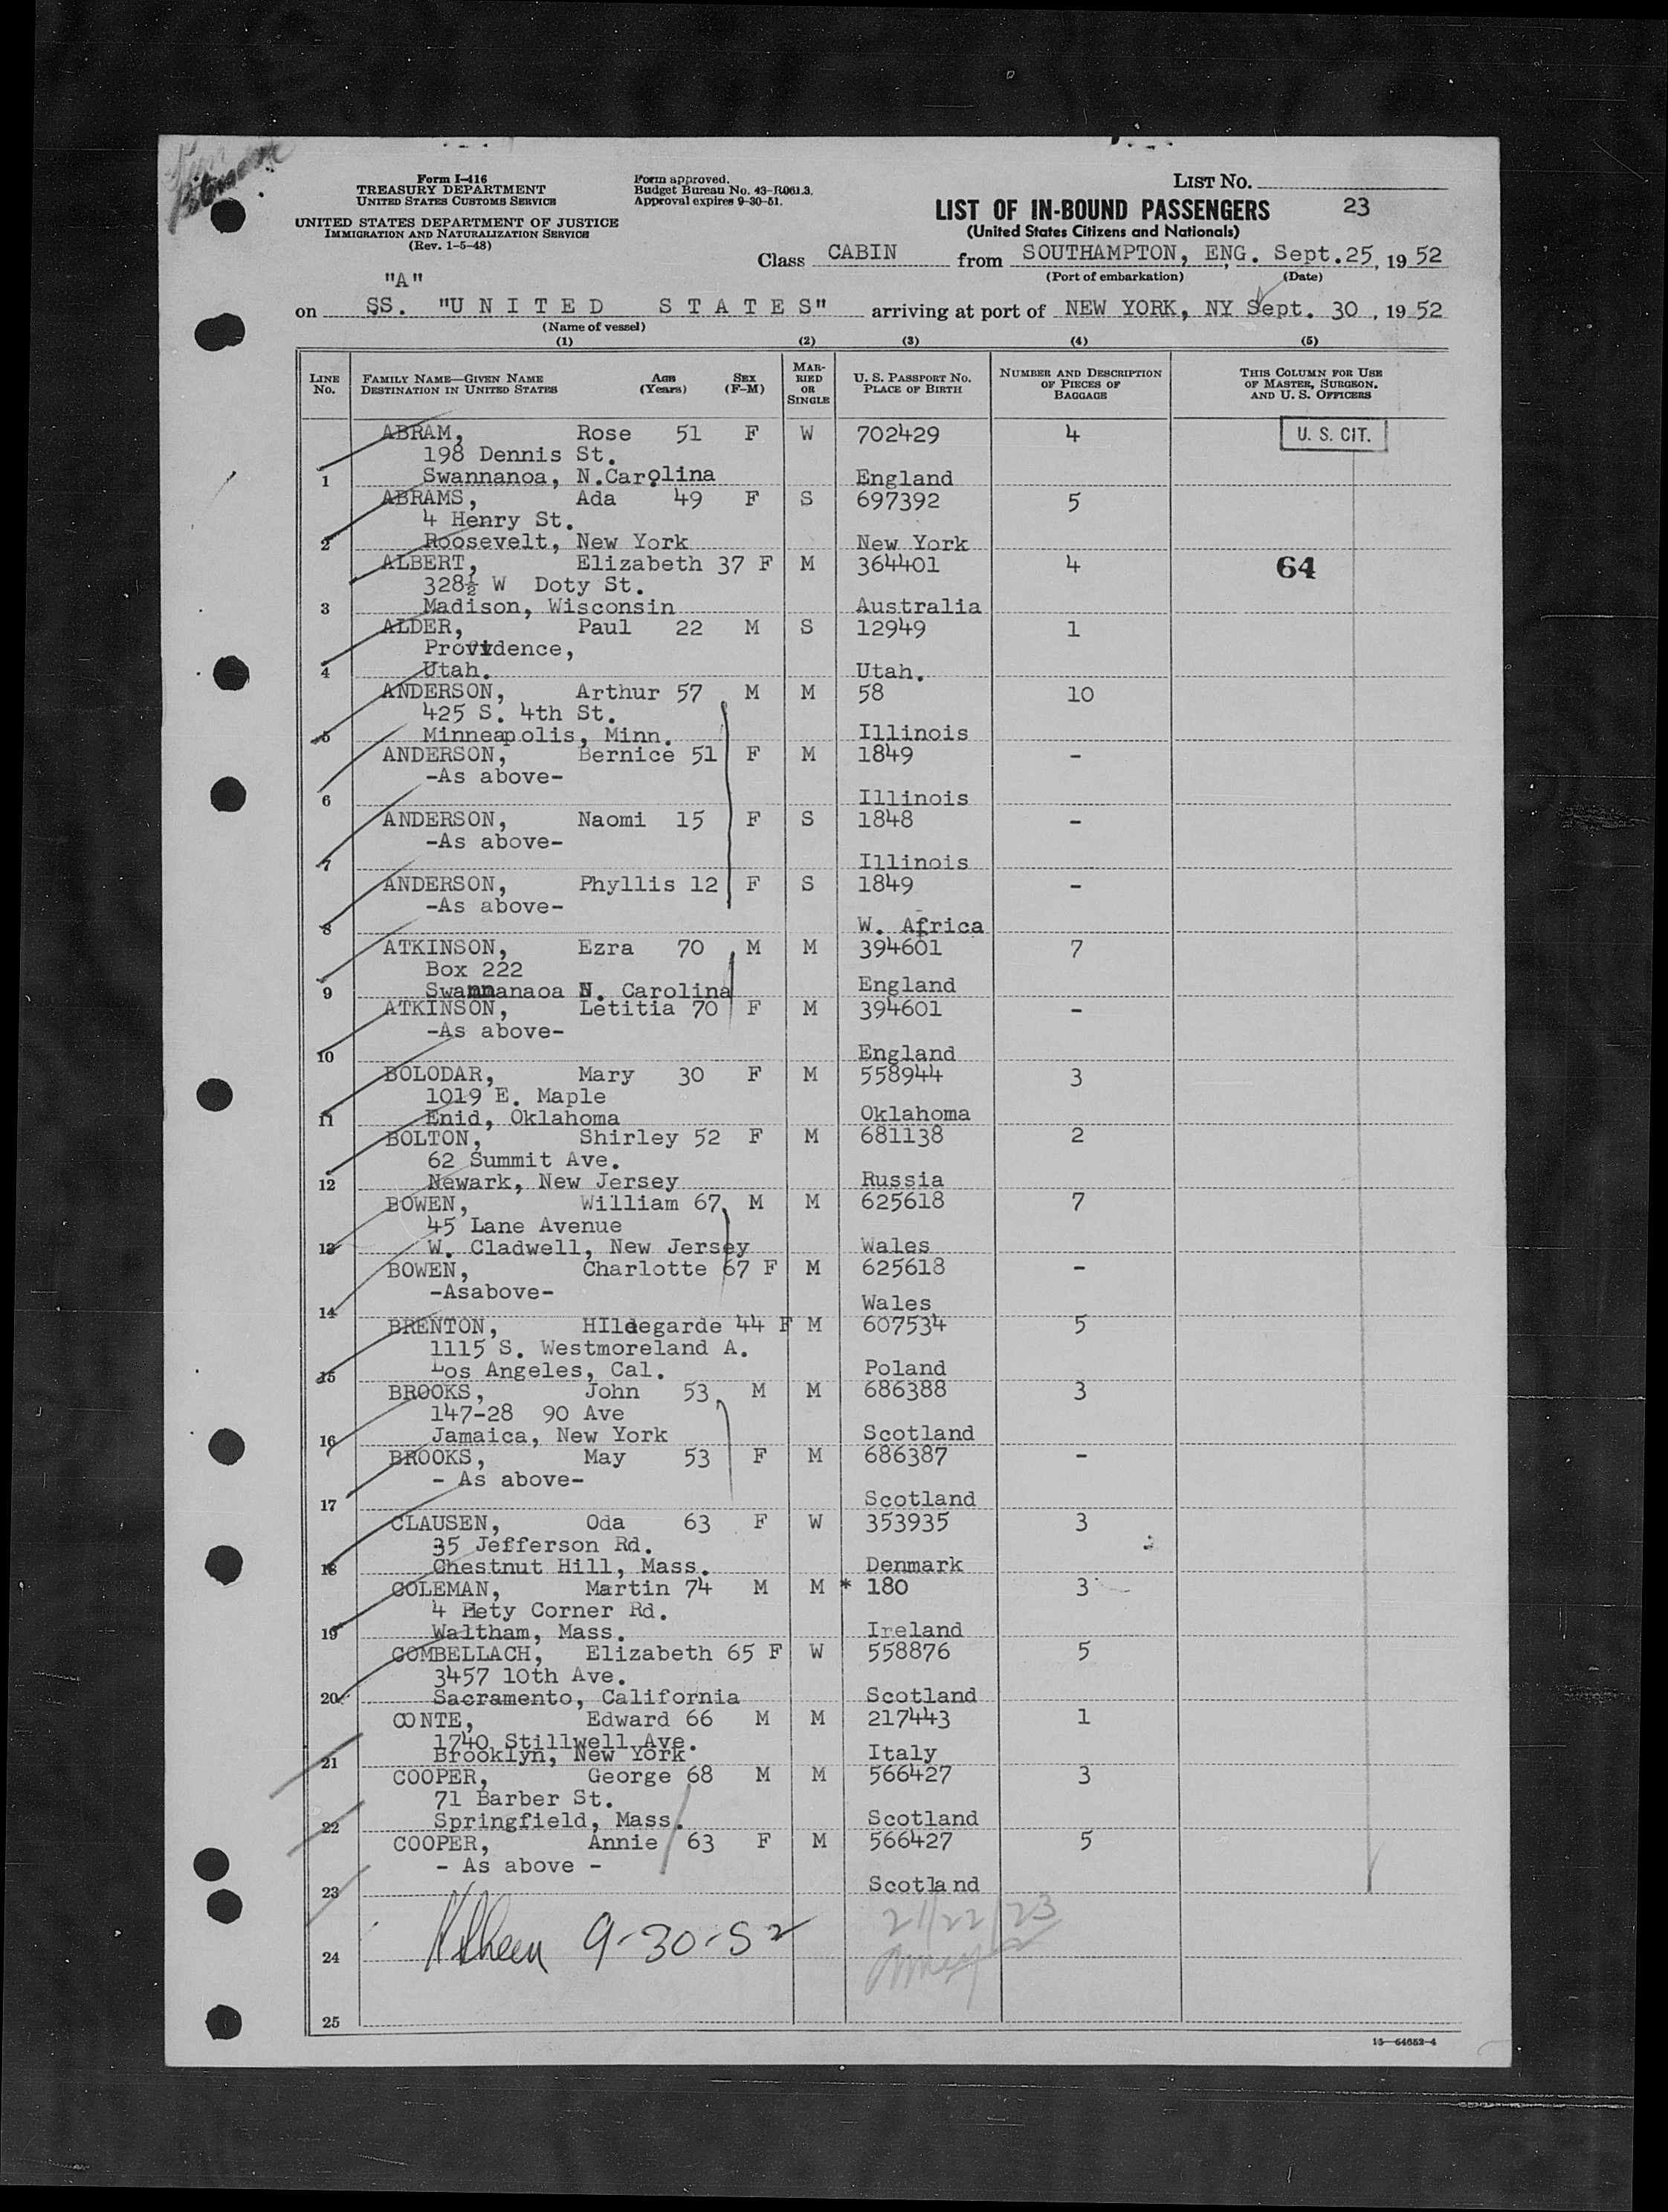 Form I-416
TREASURY DEPARTMENT
UNITED STATES CUSTOMS SERVICE
UNITED STATES DEPARTMENT OF JUSTICE
IMMIGRATION AND NATURALIZATION SERVICE
(Rev. 1-5-48)
Form approved.
Budget Bureau No. 43-R061.3.
Approval expires 9-30-51.
LIST No.
LIST OF IN-BOUND PASSENGERS 23
(United States Citizens and Nationals)
Class CABIN from SOUTHAMPTON, ENG. Sept.25, 19 52
(Port of embarkation) (Date)
"A"
on SS. "U N I T E D S T A T E S" arriving at port of NEW YORK, NY Sept. 30 , 19 52
(Name of vessel)
(1) (2) (3) (4) (5)
LINE No. FAMILY NAME—GIVEN NAME DESTINATION IN UNITED STATES AGE (Years) SEX (F-M) MARRIED OR SINGLE U. S. PASSPORT NO. PLACE OF BIRTH NUMBER AND DESCRIPTION OF PIECES OF BAGGAGE THIS COLUMN FOR USE OF MASTER, SURGEON, AND U. S. OFFICERS
ABRAM, Rose 51 F W 702429 4 U. S. CIT.
198 Dennis St.
1 Swannanoa, N.Carolina England
ABRAMS, Ada 49 F S 697392 5
4 Henry St.
2 Roosevelt, New York New York
ALBERT, Elizabeth 37 F M 364401 4 64
328½ W Doty St.
3 Madison, Wisconsin Australia
ALDER, Paul 22 M S 12949 1
Providence,
4 Utah. Utah.
ANDERSON, Arthur 57 M M 58 10
425 S. 4th St.
5 Minneapolis, Minn. Illinois
ANDERSON, Bernice 51 F M 1849 -
-As above-
6 Illinois
ANDERSON, Naomi 15 F S 1848 -
-As above-
7 Illinois
ANDERSON, Phyllis 12 F S 1849 -
-As above-
8 W. Africa
ATKINSON, Ezra 70 M M 394601 7
Box 222
9 Swannanaoa N. Carolina England
ATKINSON, Letitia 70 F M 394601 -
-As above-
10 England
BOLODAR, Mary 30 F M 558944 3
1019 E. Maple
11 Enid, Oklahoma Oklahoma
BOLTON, Shirley 52 F M 681138 2
62 Summit Ave.
12 Newark, New Jersey Russia
BOWEN, William 67 M M 625618 7
45 Lane Avenue
13 W. Cladwell, New Jersey Wales
BOWEN, Charlotte 67 F M 625618 -
-Asabove-
14 Wales
BRENTON, HIldegarde 44 F M 607534 5
1115 S. Westmoreland A.
15 Los Angeles, Cal. Poland
BROOKS, John 53 M M 686388 3
147-28 90 Ave
16 Jamaica, New York Scotland
BROOKS, May 53 F M 686387 -
- As above-
17 Scotland
CLAUSEN, Oda 63 F W 353935 3
35 Jefferson Rd.
18 Chestnut Hill, Mass. Denmark
COLEMAN, Martin 74 M M * 180 3
4 Corner Rd.
19 Waltham, Mass. Ireland
COMBELLACH, Elizabeth 65 F W 558876 5
3457 10th Ave.
20 Sacramento, California Scotland
CONTE, Edward 66 M M 217443 1
1740 Stillwell Ave.
21 Brooklyn, New York Italy
COOPER, George 68 M M 566427 3
71 Barber St.
22 Springfield, Mass. Scotland
COOPER, Annie 63 F M 566427 5
- As above -
23 Scotland
9-30-52 21/22/23
24
25